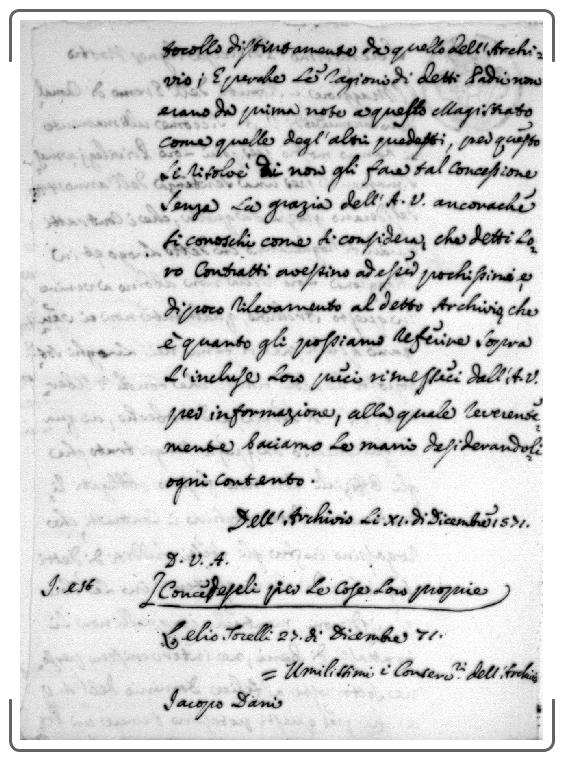 tocollo distintamente da quello dell'Archi-
vio; E perche le ragioni di detti Padri non
erano da prima note a questo Magistrato
come quelle degl'altri predetti, per questo
si risolvé di non gli fare tal Concessione
senza la grazia dell'A. V. ancorache
si conoschi come si considera, che detti Lo-
ro Contratti avessino ad esser pochissimi, e
di poco rilevamento al detto Archivio, che
è quanto gli possiamo referire sopra
l'incluse loro preci rimesseci dall'A. V.
per informazione, alla quale reverente-
mente baciamo le mani desiderandoli
ogni contento.
Dell'Archivio li XI. di Dicembre 1571.
D. V. A.
J. est Concedeseli per le cose loro proprie
Lelio Torelli 27. di Dicembre 71.
= Umilissimi i Conserv.ri dell'Archivio
Jacopo Dani